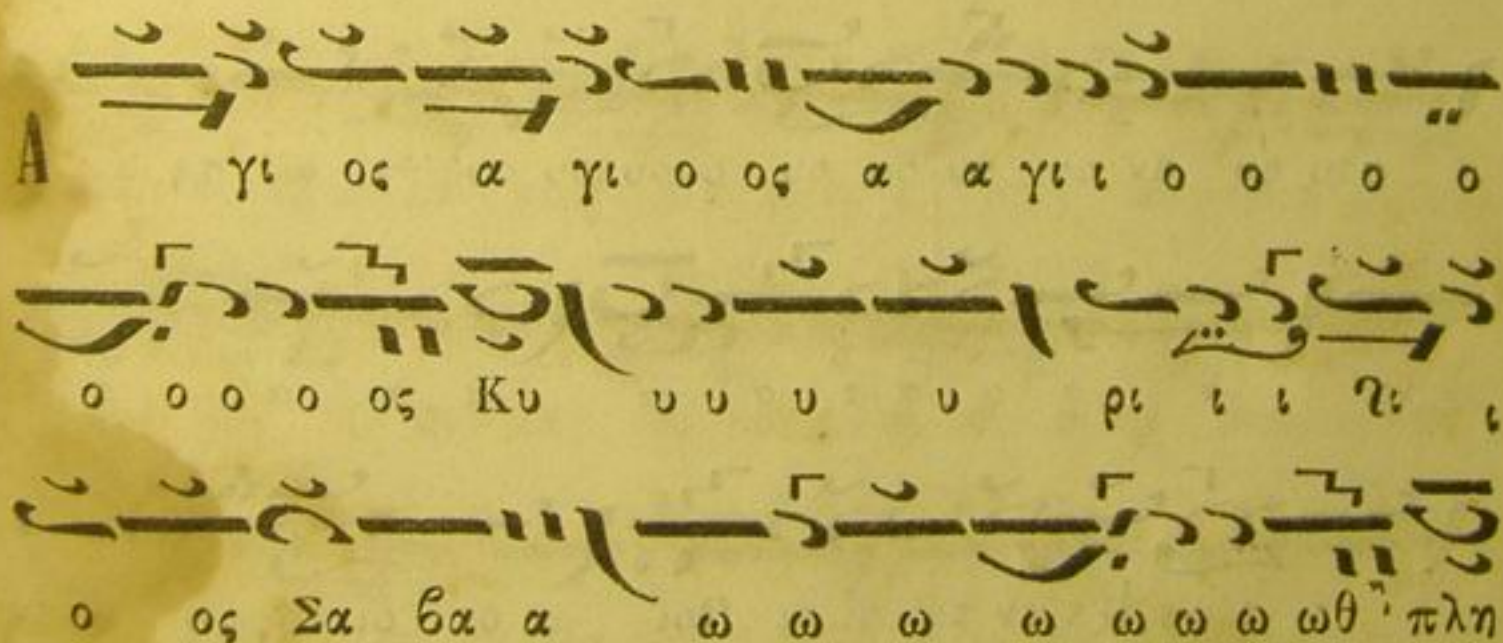 Α γι ος α γι ο ος α α γι ι ο ο ο ο
ο ο ο ο ος Κυ υ υ υ υ ρι ι ι ι
ο ος Σα ϐα α ω ω ω ω ω ω ω ωθ πλη